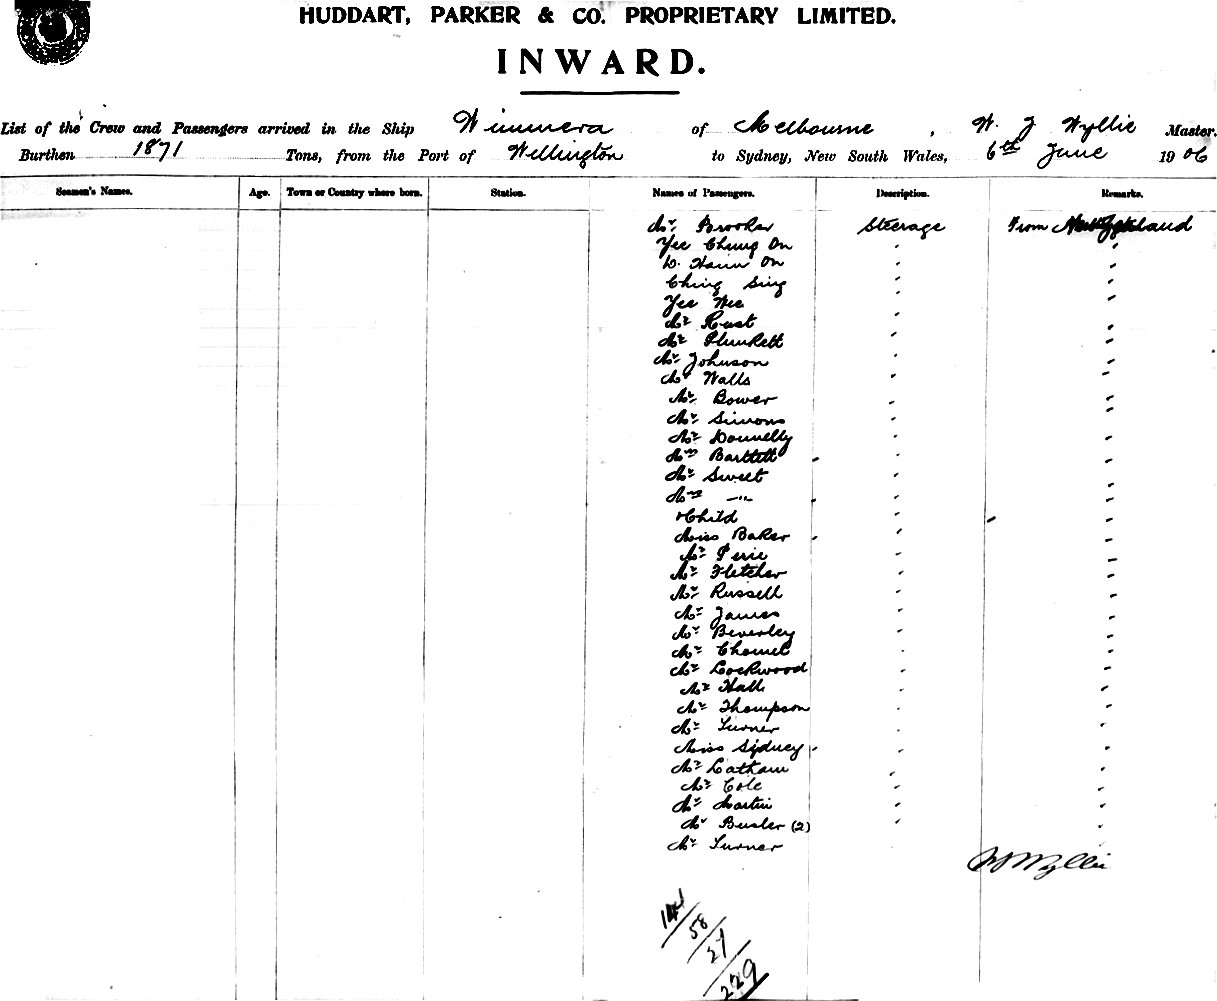 HUDDART, PARKER & CO. PROPRIETARY LIMITED.
INWARD.
List of the Crew and Passengers arrived in the Ship Wimmera of Melbourne, W. J Wyllie Master.
Burthen 1871 Tons, from the Port of Wellington to Sydney, New South Wales, 6th June 1906
Seamen's Names. Age. Town or Country where born. Station. Names of Passengers. Description. Remarks.
Mr Brooker Steerage From
Yee Chung On " "
On " "
Ching Sing " "
Yee Wee " "
Mr Rust " "
Mr Plunkett " "
Mr Johnson " "
Mr Walls " "
Mr Bower " "
Mr Simons " "
Mr Donnelly " "
Mrs Bartlett " "
Mr Sweet " "
Mrs " " "
Child " "
Miss Baker " "
Mr Perie " "
Mr Fletcher " "
Mr Russell " "
Mr James " "
Mr Beverley " "
Mr " "
Mr Lockwood " "
Mr Hall " "
Mr Thompson " "
Mr Turner " "
Miss Sydney " "
Mr Latham " "
Mr Cole " "
Mr Martin " "
Mr Busler (2) " "
Mr Turner
WJWyllie
144
58
27
229